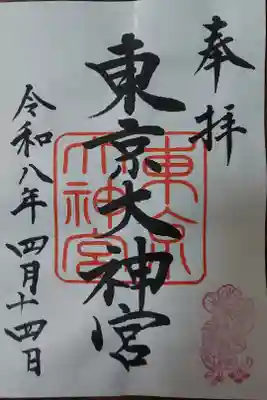 奉拝
東京大神宮
東京大神宮
令和八年四月十四日